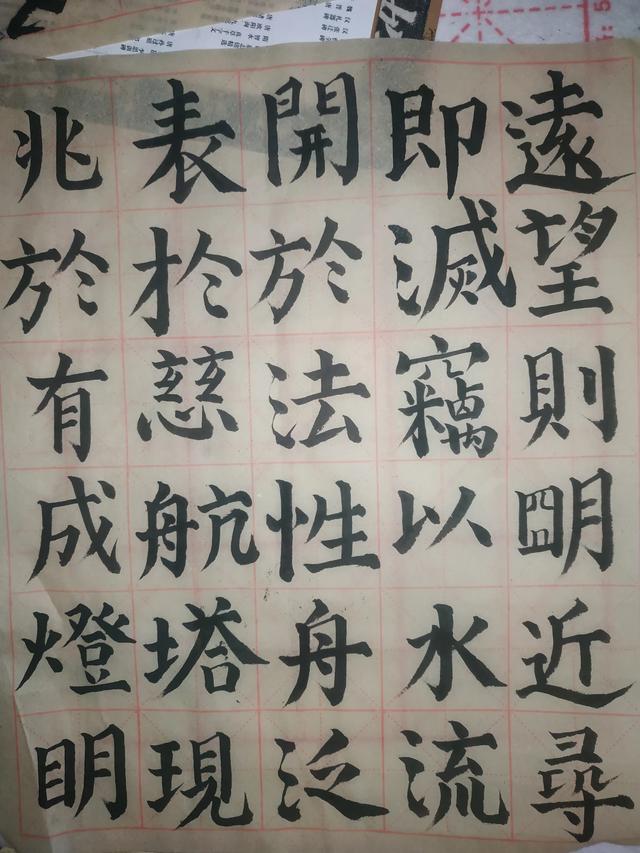 遠望則明近尋
即滅竊以水流
開於法性舟泛
表於慈航塔現
兆於有成燈明